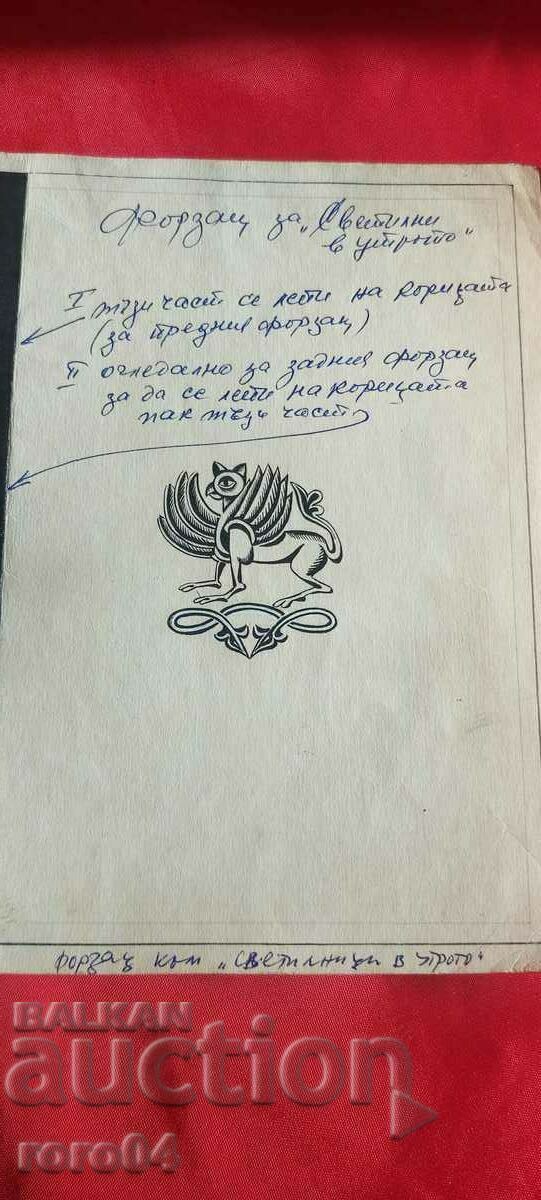 Форзац за „Светилни
в утрото"
I тъзи част се лепи на корицата
(за предния форзац)
II огледално за задния форзац
за да се лепи на корицата
пак тъзи част
форзац към „Светилници в утрото"
BALKAN
auction
roro04